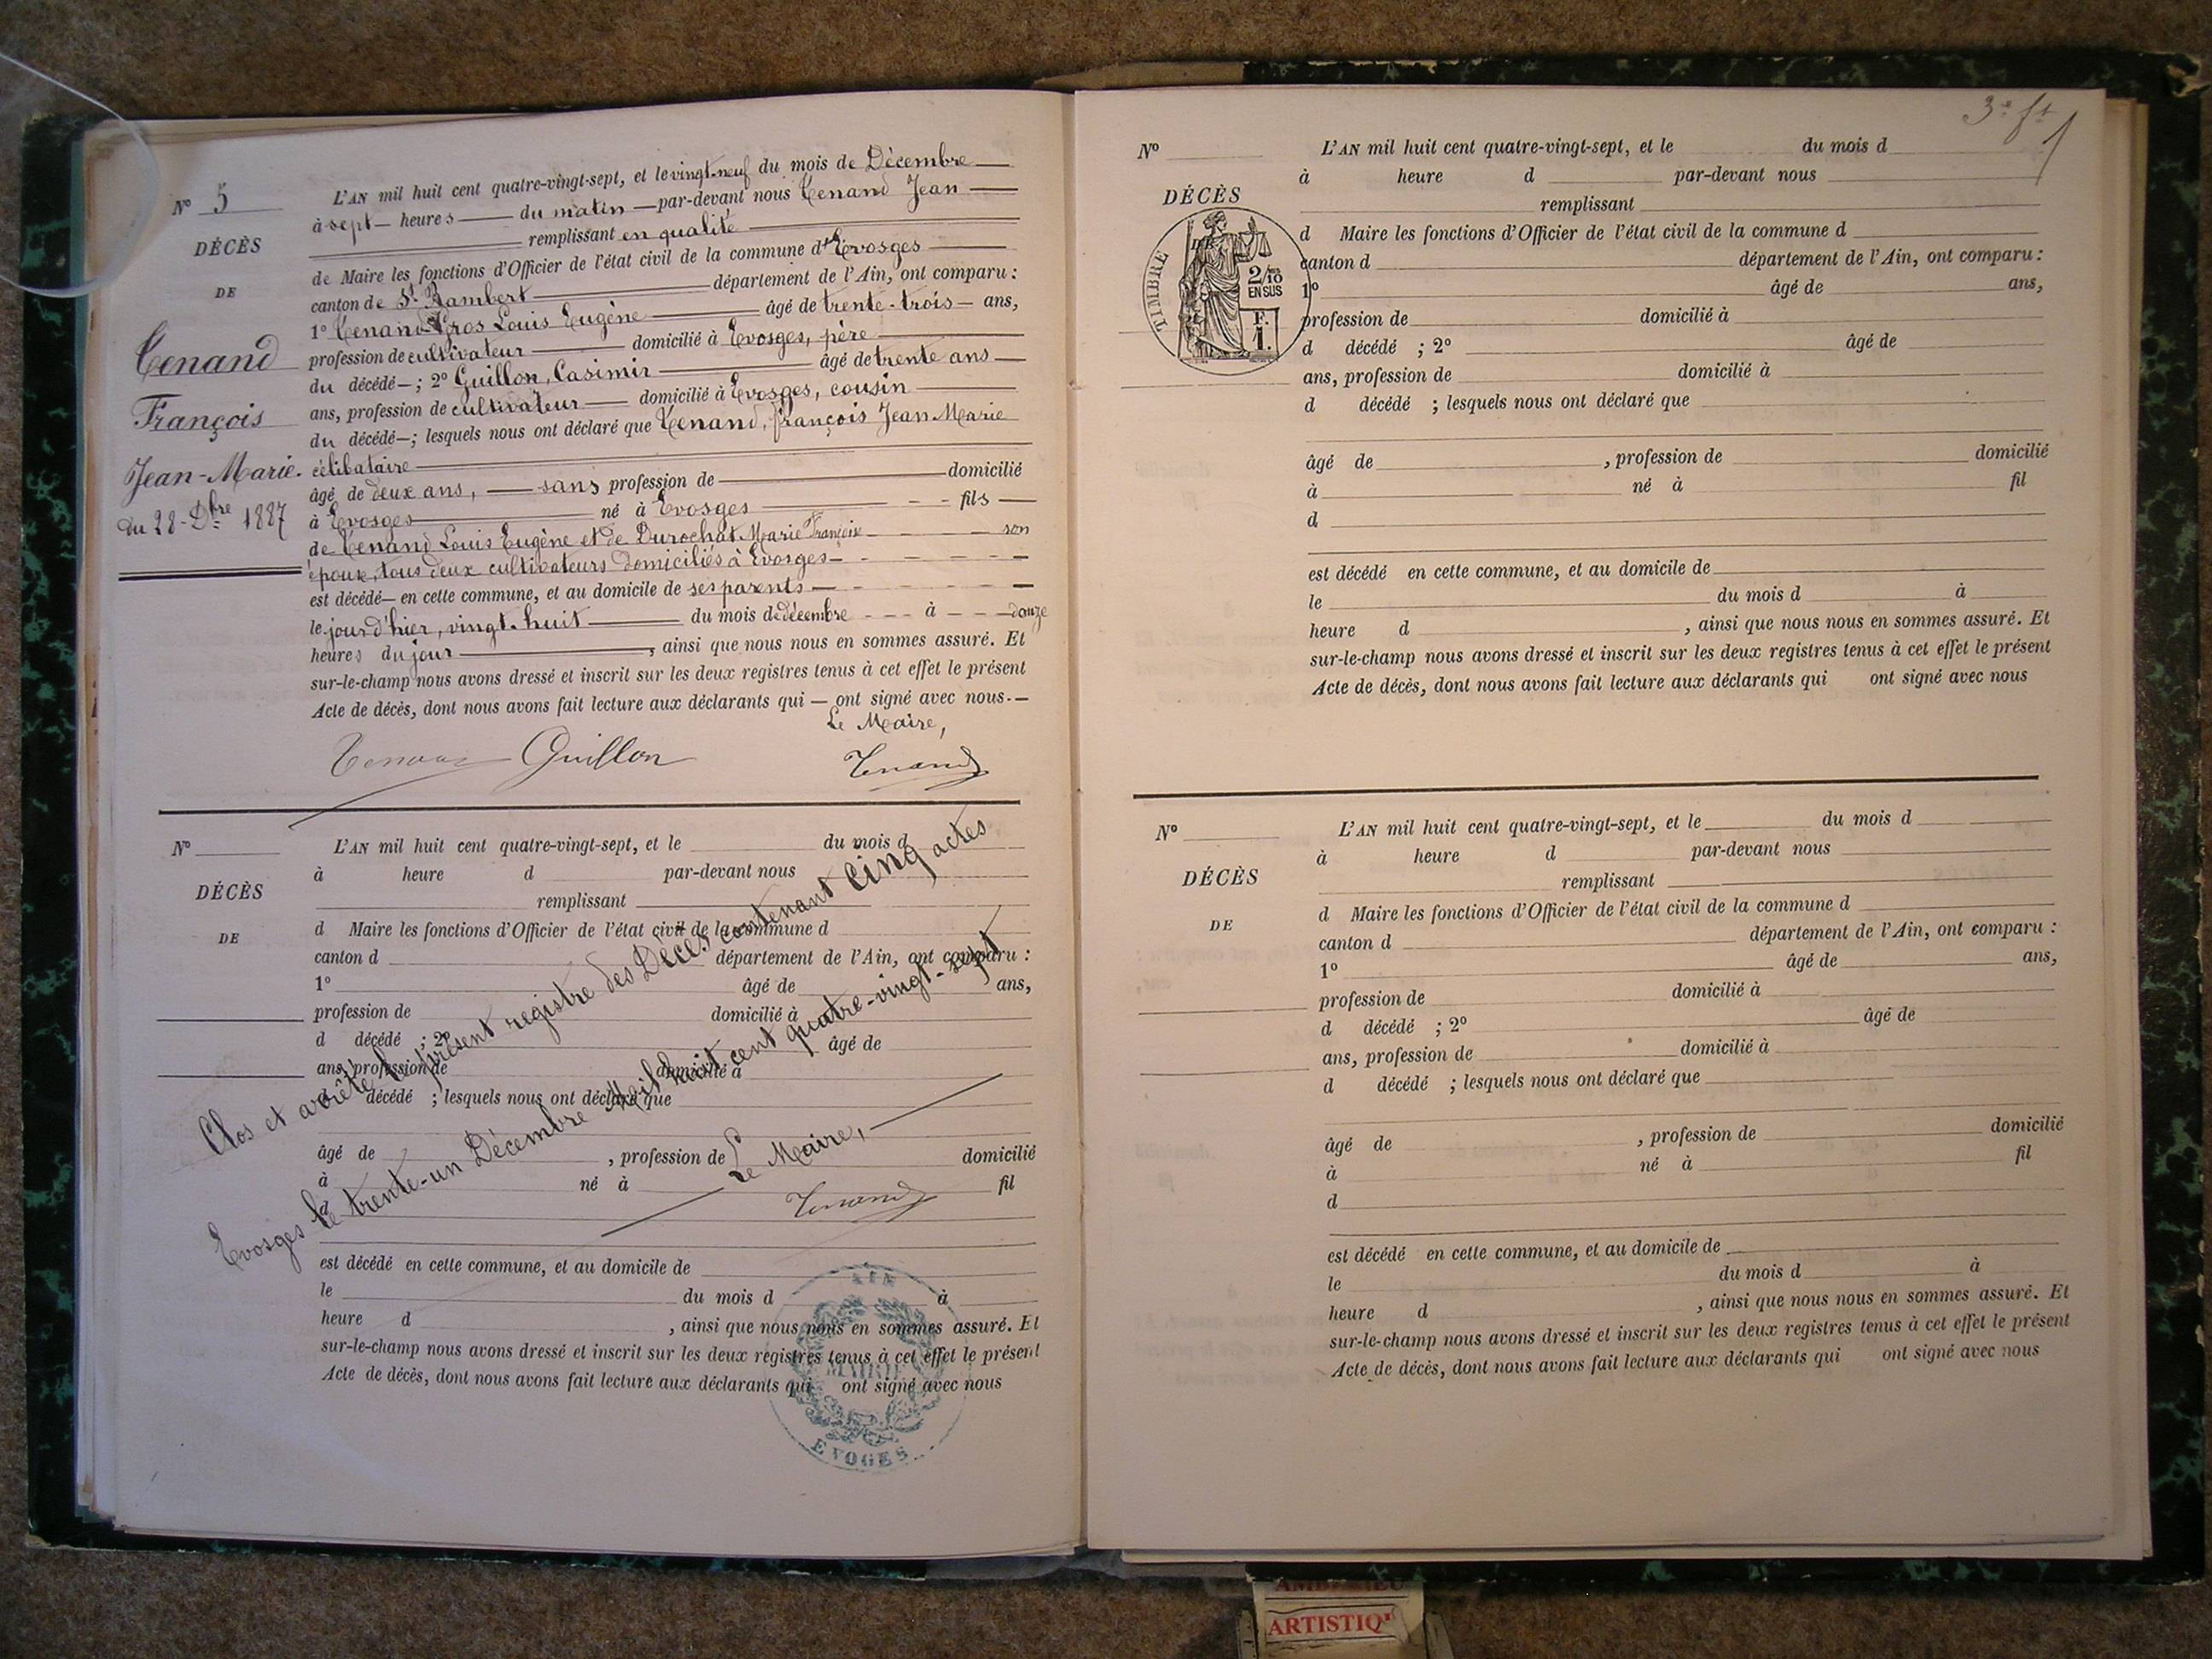 N° 5
DÉCÈS
DE
Tenand
François
Jean-Marie.
du 28 Dbre 1887
L'AN mil huit cent quatre-vingt-sept, et le vingt-neuf du mois de Décembre
à sept heures du matin par-devant nous Tenand Jean
remplissant en qualité
de Maire les fonctions d'Officier de l'état civil de la commune d'Evosges
canton de St. Rambert département de l'Ain, ont comparu :
1° Tenand-Gros Louis Eugène âgé de trente-trois ans,
profession de cultivateur domicilié à Evosges, père
du décédé ; 2° Guillon, Casimir âgé de trente ans
ans, profession de cultivateur domicilié à Evosges, cousin
du décédé ; lesquels nous ont déclaré que Tenand, françois Jean Marie
célibataire
âgé de deux ans, sans profession de domicilié
à Evosges né à Evosges fils
de Tenand Louis Eugène et de Durochat Marie Françoise son
épouse, tous deux cultivateurs domiciliés à Evosges
est décédé en cette commune, et au domicile de ses parents
le jour d'hier, vingt-huit du mois de décembre à douze
heures du jour, ainsi que nous nous en sommes assuré. Et
sur-le-champ nous avons dressé et inscrit sur les deux registres tenus à cet effet le présent
Acte de décès, dont nous avons fait lecture aux déclarants qui ont signé avec nous.
Le Maire,
Tenand Guillon Tenand
N°
DÉCÈS
DE
L'AN mil huit cent quatre-vingt-sept, et le du mois d
à heure d par-devant nous
remplissant
d Maire les fonctions d'Officier de l'état civil de la commune d
canton d département de l'Ain, ont comparu :
1° âgé de ans,
profession de domicilié à
d décédé ; 2° âgé de
ans, profession de domicilié à
d décédé ; lesquels nous ont déclaré que
âgé de , profession de domicilié
à né à fil
d
est décédé en cette commune, et au domicile de
le du mois d à
heure d , ainsi que nous nous en sommes assuré. Et
sur-le-champ nous avons dressé et inscrit sur les deux registres tenus à cet effet le présent
Acte de décès, dont nous avons fait lecture aux déclarants qui ont signé avec nous
Clos et arrêté le présent registre des Décès contenant Cinq actes
Evosges le trente-un Décembre Mil huit cent quatre-vingt-sept
Le Maire,
Tenand
AIN
MAIRIE
EVOGES
3e ft
N°
DÉCÈS
TIMBRE
2/10
EN SUS
F.
1.
L'AN mil huit cent quatre-vingt-sept, et le du mois d
à heure d par-devant nous
remplissant
d Maire les fonctions d'Officier de l'état civil de la commune d
canton d département de l'Ain, ont comparu :
1° âgé de ans,
profession de domicilié à
d décédé ; 2° âgé de
ans, profession de domicilié à
d décédé ; lesquels nous ont déclaré que
âgé de , profession de domicilié
à né à fil
d
est décédé en cette commune, et au domicile de
le du mois d à
heure d , ainsi que nous nous en sommes assuré. Et
sur-le-champ nous avons dressé et inscrit sur les deux registres tenus à cet effet le présent
Acte de décès, dont nous avons fait lecture aux déclarants qui ont signé avec nous
N°
DÉCÈS
DE
L'AN mil huit cent quatre-vingt-sept, et le du mois d
à heure d par-devant nous
remplissant
d Maire les fonctions d'Officier de l'état civil de la commune d
canton d département de l'Ain, ont comparu :
1° âgé de ans,
profession de domicilié à
d décédé ; 2° âgé de
ans, profession de domicilié à
d décédé ; lesquels nous ont déclaré que
âgé de , profession de domicilié
à né à fil
d
est décédé en cette commune, et au domicile de
le du mois d à
heure d , ainsi que nous nous en sommes assuré. Et
sur-le-champ nous avons dressé et inscrit sur les deux registres tenus à cet effet le présent
Acte de décès, dont nous avons fait lecture aux déclarants qui ont signé avec nous
ARTISTIQ